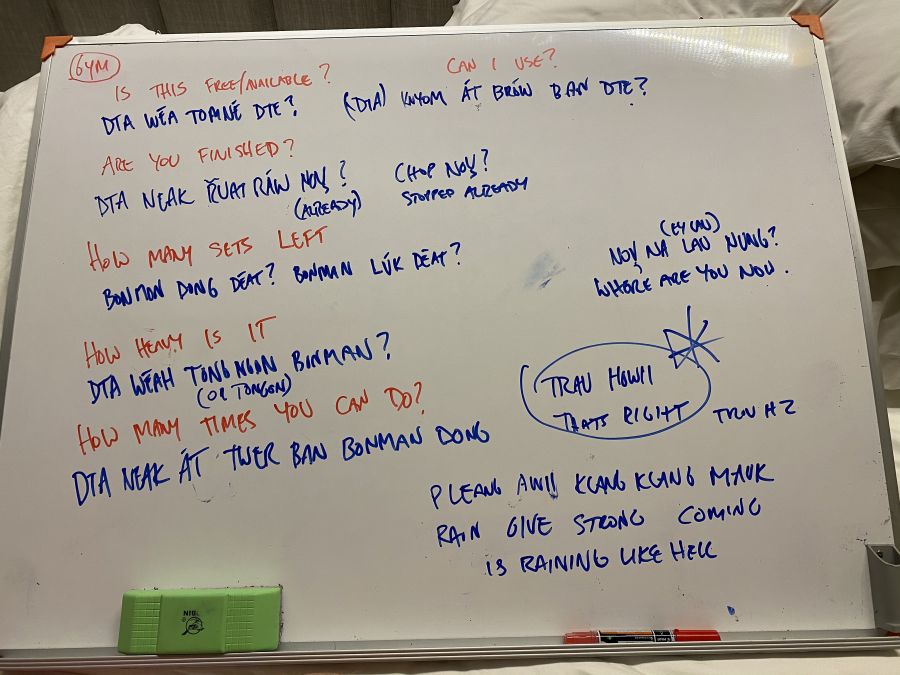 GYM
IS THIS FREE/AVAILABLE?
CAN I USE?
DTA WÉA TOMNÉ DTE?
(DTA) KNYOM ÁT BRÁW BAN DTE?
ARE YOU FINISHED?
DTA NEAK RUAT RÁW NOY?
CHOP NOY?
(ALREADY)
STOPPED ALREADY
HOW MANY SETS LEFT
BONMON DONG DÉAT? BONMAN LÚK DÉAT?
HOW HEAVY IS IT
DTA WÉAH TONGNGON BONMAN?
(OR TONGON)
HOW MANY TIMES YOU CAN DO?
DTA NEAK ÁT TWER BAN BONMAN DONG
(EYLAU)
NOY NA LAU NUNG?
WHERE ARE YOU NOW.
TRAU HOWII
THATS RIGHT
PLEANG AWII KLANG KLANG MAUK
RAIN GIVE STRONG COMING
IS RAINING LIKE HELL